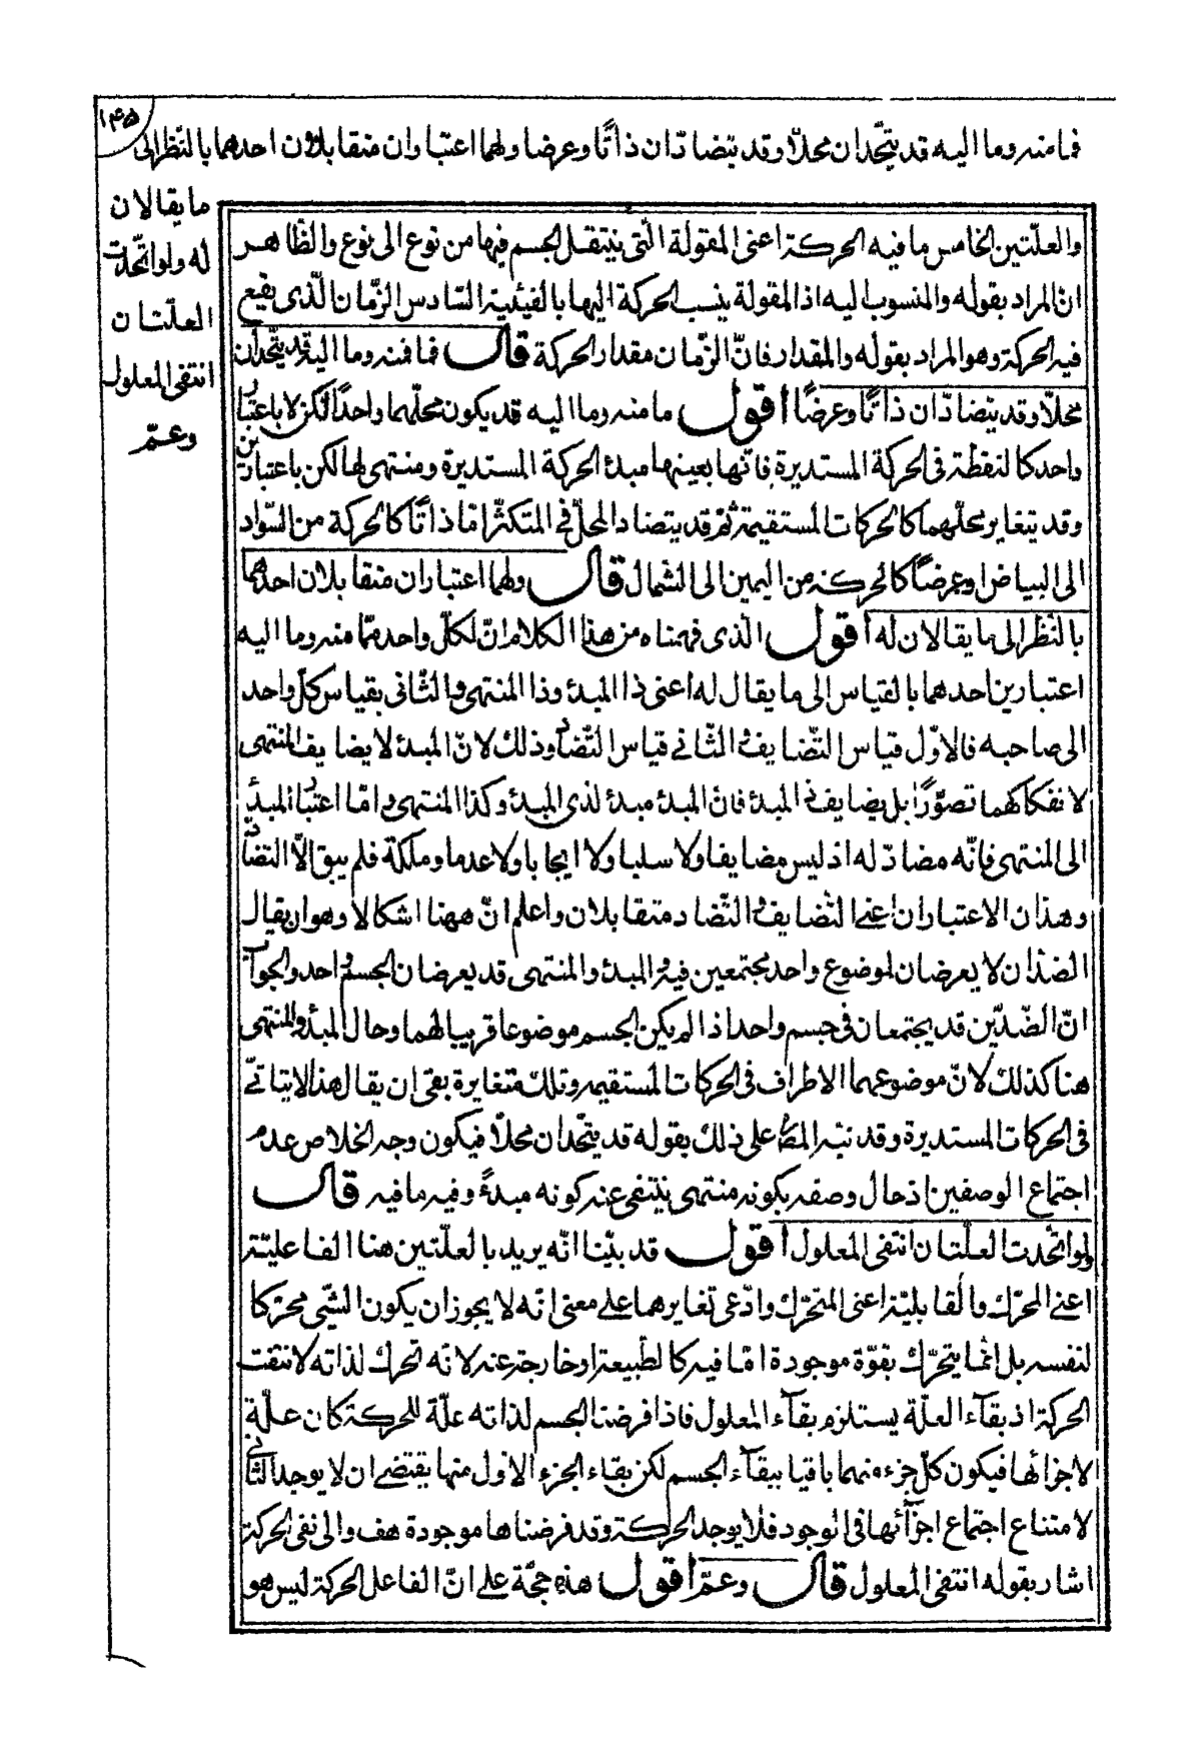 ١٤٥
فما منه وما اليه قد يتّحدان محلّا وقد يتضادّان ذاتًا وعرضا ولهما اعتباران متقابلان احدهما بالنّظر الى
ما يقالان
له ولو اتّحدت
العلّتان
انتفى المعلول
وعمّ
والعلّتين الخامس ما فيه الحركة اعنى المقولة الّتى ينتقل الجسم فيها من نوع الى نوع والظّاهر
انّ المراد بقوله والمنسوب اليه اذ المقولة ينسب الحركة اليها بالفيئية السّادس الزّمان الّذى يقع
فيه الحركة وهو المراد بقوله والمقدار فانّ الزّمان مقدار الحركة قال فما منه وما اليه قد يتّحدان
محلّا وقد يتضادّان ذاتًا وعرضًا اقول ما منه وما اليه قد يكون محلّهما واحدًا لكن لا باعتبار
واحد كالنقطة فى الحركة المستديرة فانّها بعينها مبدئ الحركة المستديرة ومنتهى لها لكن باعتبارين
وقد يتغاير محلّهما كالحركات المستقيمة ثمّ قد يتضاد المحلّ فى المتكثّر امّا ذاتًا كالحركة من السّواد
الى البياض او عرضًا كالحركة من اليمين الى الشمال قال ولهما اعتباران متقابلان احدهما
بالنّظر الى ما يقالان له اقول الّذى فهمناه من هذا الكلام انّ لكلّ واحد ممّا منه وما اليه
اعتبارين احدهما بالقياس الى ما يقال له اعنى ذا المبدئ وذا المنتهى والثّانى بقياس كلّ واحد
الى صاحبه فالاوّل قياس التّضايف والثّانى قياس التّضاد وذلك لانّ المبدئ لا يضايف المنتهى
لانفكاكهما تصوّرًا بل يضايف ذى المبدئ فانّ المبدئ مبدئ لذى المبدئ وكذا المنتهى وامّا اعتبار المبدئ
الى المنتهى فانّه مضادّ له اذ ليس مضايفا ولا سلبا ولا ايجابا ولا عدما وملكة فلم يبق الّا التضاد
وهذان الاعتباران اعنى التّضايف والتّضاد متقابلان واعلم انّ ههنا اشكالا وهو ان يقال
الضدّان لا يعرضان لموضوع واحد مجتمعين فيه والمبدئ والمنتهى قد يعرضان لجسم واحد والجواب
انّ الضّدّين قد يجتمعان فى جسم واحد اذا لم يكن الجسم موضوعا قريبا لهما وحال المبدئ والمنتهى
هنا كذلك لانّ موضوعهما الاطراف فى الحركات المستقيمة وتلك متغايرة بقى ان يقال هذا لا يتاتّى
فى الحركات المستديرة وقد نبّه المص على ذلك بقوله قد يتّحدان محلّا فيكون وجه الخلاص عدم
اجتماع الوصفين اذ حال وصفه بكونه منتهى ينتفى عنه كونه مبدءً وفيه ما فيه قال
ولو اتّحدت العلّتان انتفى المعلول اقول قد بيّنا انّه يريد بالعلّتين هنا الفاعليّة
اعنى المحرّك والقابليّة اعنى المتحرّك وادّعى تغايرهما على معنى انّه لا يجوز ان يكون الشئ محرّكا
لنفسه بل انّما يتحرّك بقوّة موجودة امّا فيه كالطبيعة او خارجة عنه لانّه لو تحرك لذاته لانتفت
الحركة اذ بقآء العلّة يستلزم بقآء المعلول فاذا فرضنا الجسم لذاته علّة للحركة كان علّة
لاجزائها فيكون كلّ جزء منهما باقيا ببقآء الجسم لكن بقاء الجزء الاوّل منها يقتضى ان لا يوجد الثّانى
لامتناع اجتماع اجزآئها فى الوجود فلا يوجد الحركة وقد فرضناها موجودة هف والى نفى الحركة
اشار بقوله انتفى المعلول قال وعمّ اقول هذه حجّة على انّ الفاعل للحركة ليس هو